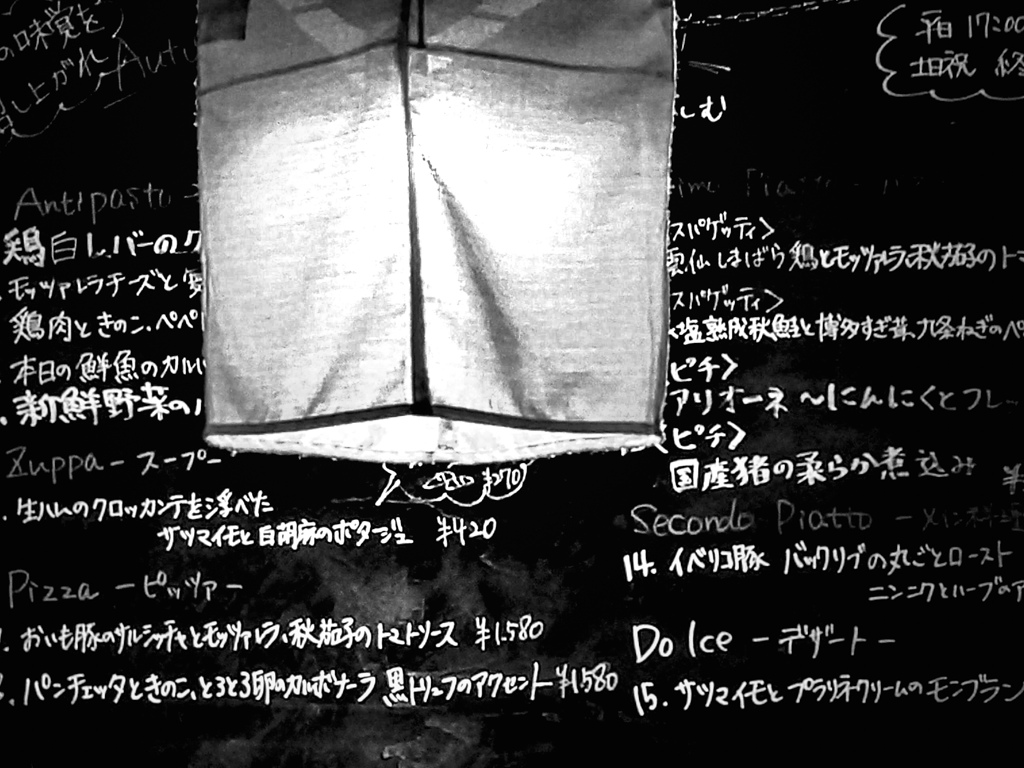 の味覚を
し上がれ
Autu
平日 17:00
土日祝
しむ
Antipasto
鶏白レバーのク
モッツァレラチーズと
鶏肉ときのこ、ペペ
本日の鮮魚のカルパ
新鮮野菜の
Zuppa - スープ -
生ハムのクロッカンテを浮べた
サツマイモと白胡麻のポタージュ ¥420
Pizza - ピッツァ -
おいも豚のサルシッチャとモッツァレラ、秋茄子のトマトソース ¥1.580
パンチェッタときのこ、とろとろ卵のカルボナーラ 黒トリュフのアクセント ¥1580
¥270
Piatto
スパゲッティ>
雲仙しまばら鶏とモッツァレラ、秋茄子のトマ
スパゲッティ>
塩熟成秋鮭と博多すぎ茸、九条ねぎのペ
ピチ>
アリオーネ ~にんにくとフレ
<ピチ>
国産猪の柔らか煮込み ¥
Secondo Piatto - メイン料理
14. イベリコ豚 バックリブの丸ごとロースト
ニンニクとハーブのア
Dolce - デザート -
15. サツマイモとプラリネクリームのモンブラン